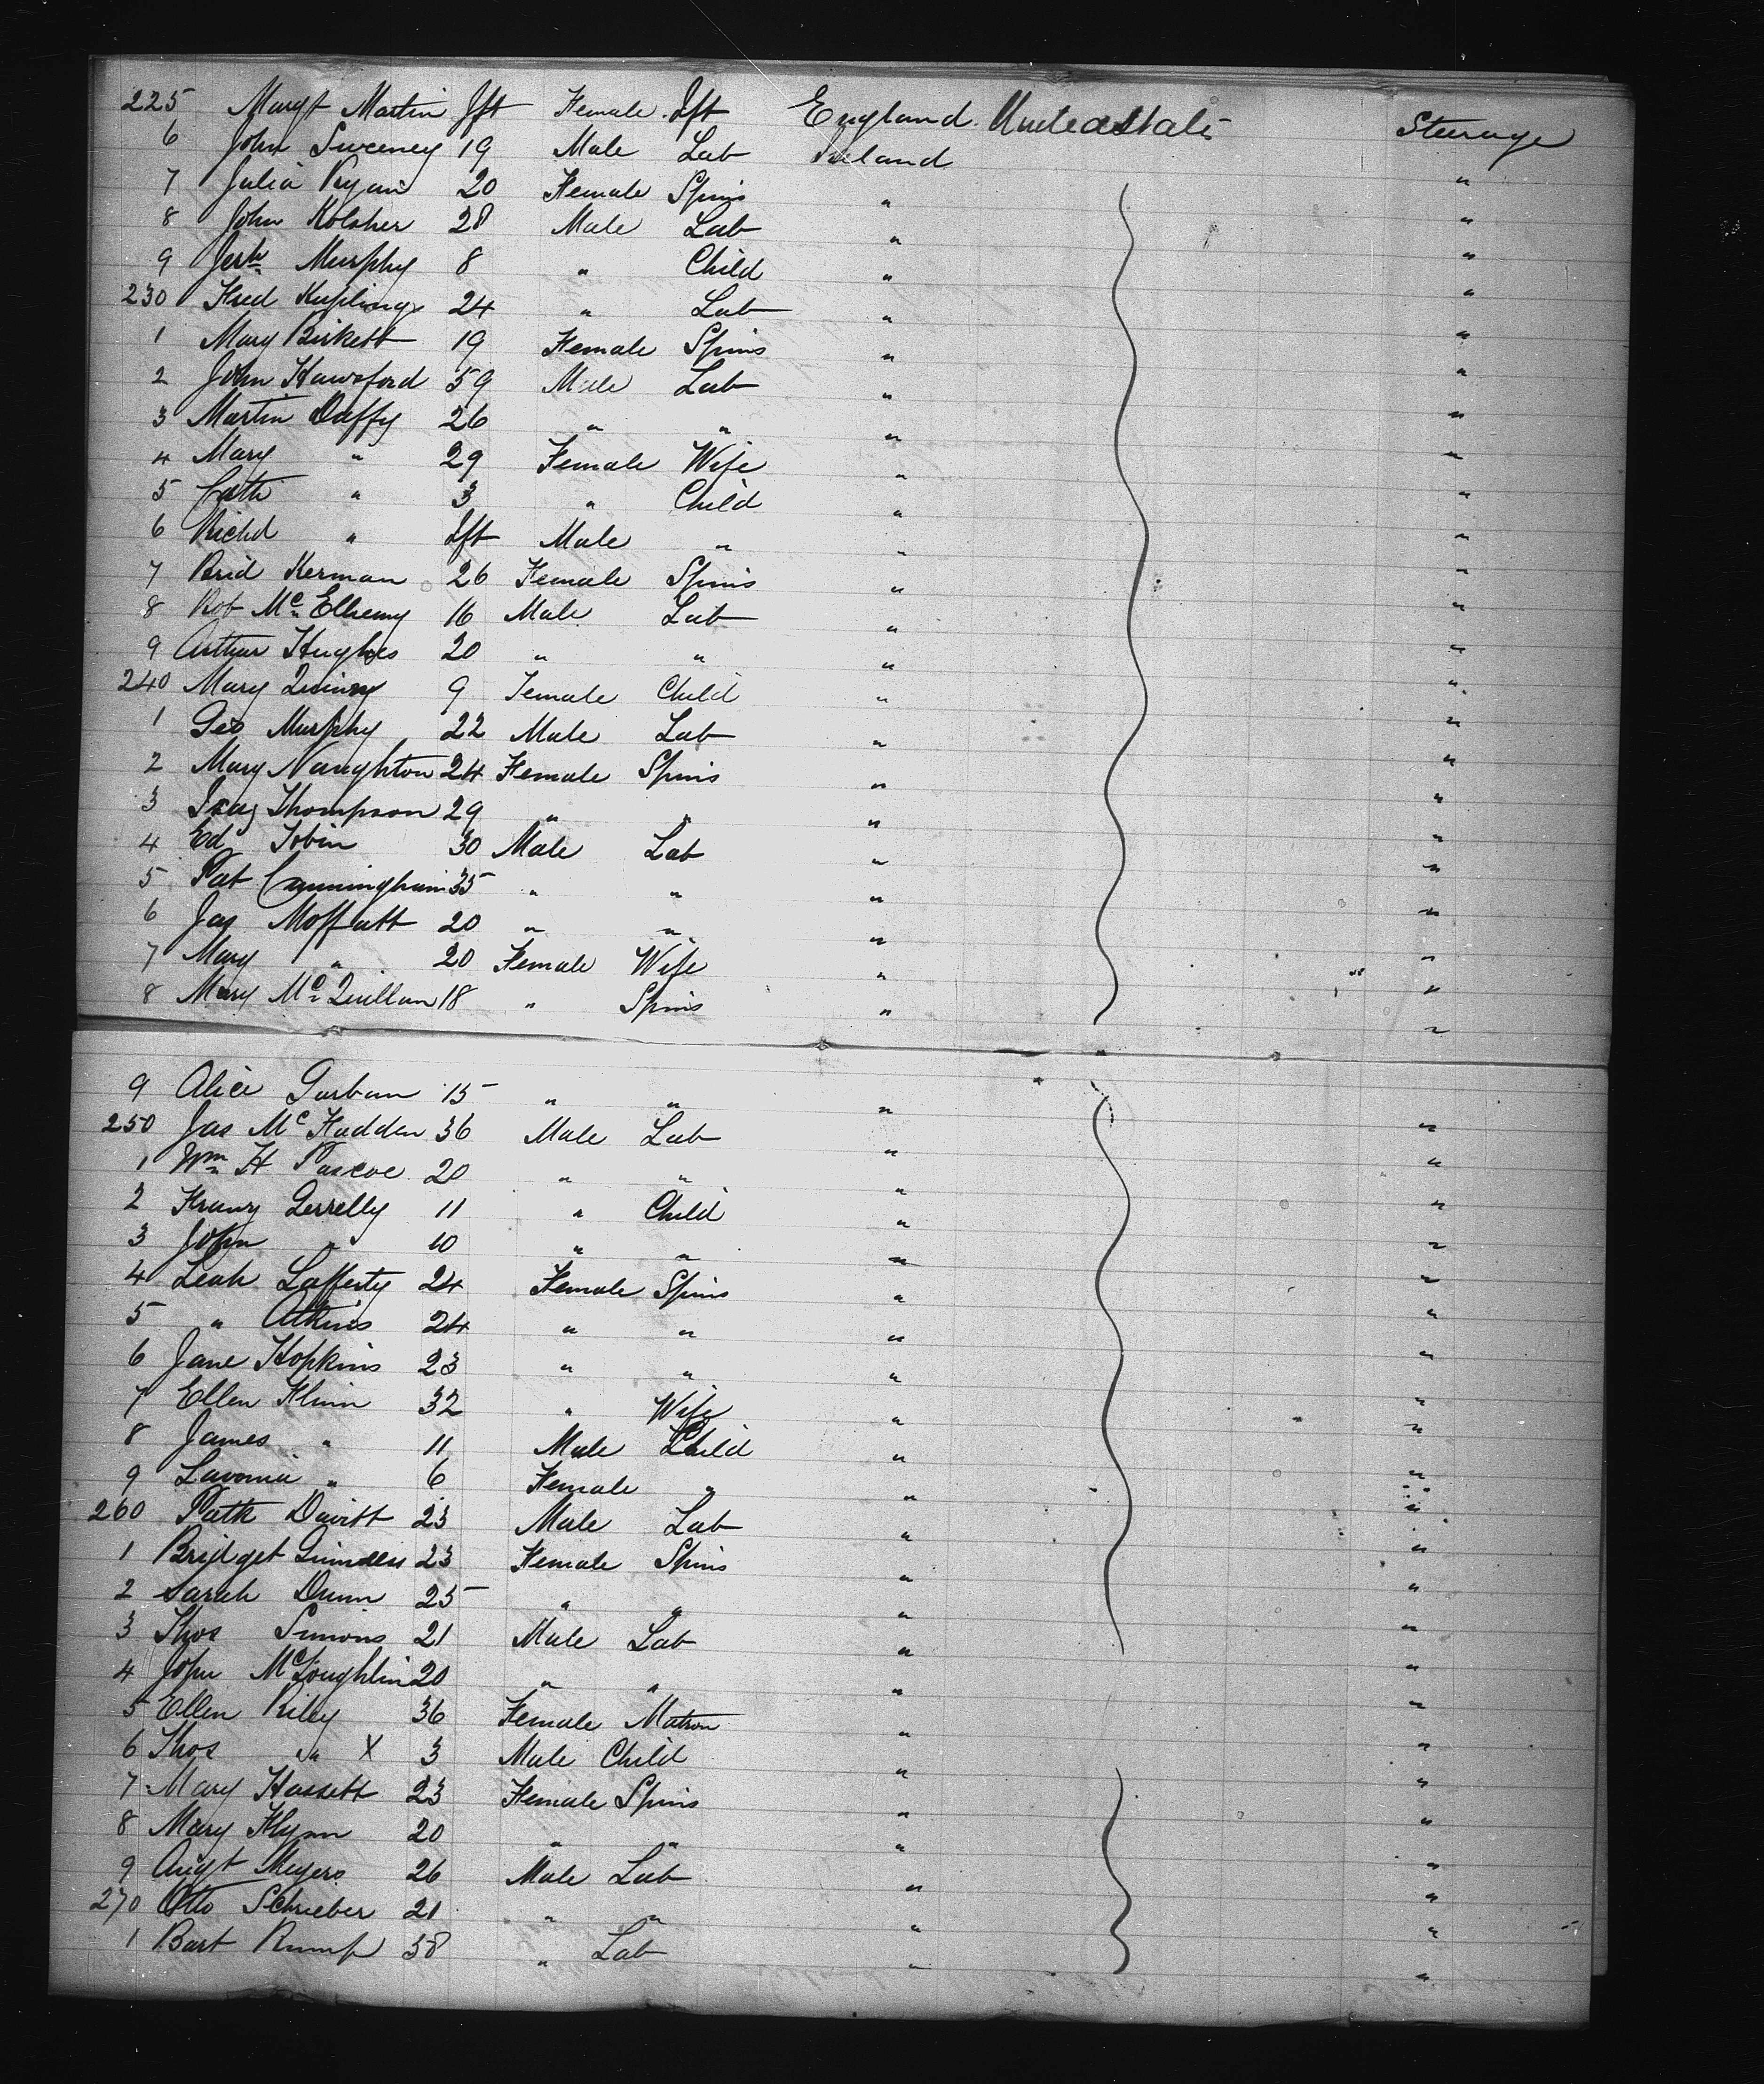 225 Margt Martin Jft Female Jft England United States Steerage
6 John Sweeney 19 Male Lab Ireland "
7 Julia Ryan 20 Female Spins " "
8 John Kolsher 28 Male Lab " "
9 Jerh Murphy 8 " Child " "
230 Fred Kupling 24 " Lab " "
1 Mary Birkett 19 Female Spins " "
2 John Hawsford 59 Male Lab " "
3 Martin Duffy 26 " " " "
4 Mary " 29 Female Wife " "
5 Cath " 3 " Child " "
6 Richd " Jft Male " " "
7 Brid Kerman 26 Female Spins " "
8 Rob Mc 16 Male Lab " "
9 Arthur Hughes 20 " " " "
240 Mary 9 Female Child " "
1 Geo Murphy 22 Male Lab " "
2 Mary Naughton 24 Female Spins " "
3 Thompson 29 " " " "
4 Ed Tobin 30 Male Lab " "
5 Pat Cunningham 35 " " " "
6 Jas Moffatt 20 " " " "
7 Mary " 20 Female Wife " "
8 Mary Mc Quillan 18 " Spins " "
9 Alice 15 " " " "
250 Jas Mc Fadden 36 Male Lab " "
1 Wm H Pascoe 20 " " " "
2 11 " Child " "
3 John " 10 " " " "
4 Leah Lafferty 24 Female Spins " "
5 " Atkins 24 " " " "
6 Jane Hopkins 23 " " " "
7 Ellen Flinn 32 " Wife " "
8 James " 11 Male Child " "
9 Lavonia " 6 Female " " "
260 Patk Davitt 23 Male Lab " "
1 Bridget 23 Female Spins " "
2 Sarah Dunn 25 " " " "
3 Thos Simons 21 Male Lab " "
4 John McLoughlin 20 " " " "
5 Ellen Rilly 36 Female Matron " "
6 Thos " X 3 Male Child " "
7 Mary Hassett 23 Female Spins " "
8 Mary Flynn 20 " " " "
9 Augt Meyers 26 Male Lab " "
270 Otto Schrieber 21 " " " "
1 Bart Rump 38 " Lab " "